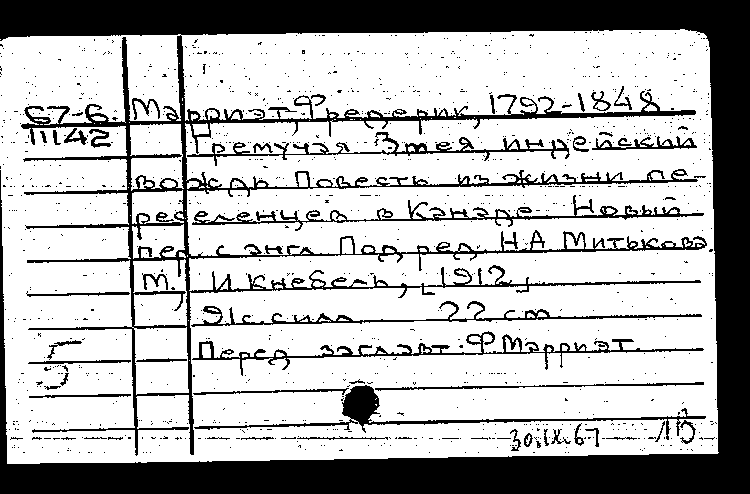 67-6. Марриэт, Фредерик, 1792-1848.
11142 Гремучая Змея, индейский
вождь Повесть из жизни пе-
реселенцев в Канаде Новый
пер. с англ Под ред. Н.А Митькова.
М., И. Кнебель, [1912]
91с. с илл 22 cm
Перед заглавт. Ф Марриэт.
5
30.IX.67 1В